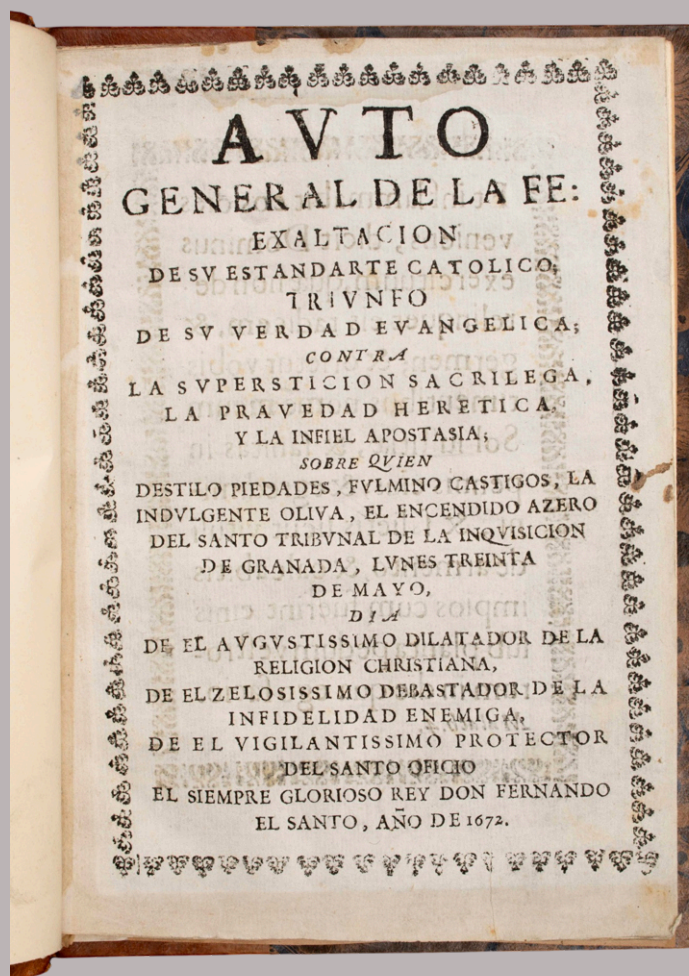 AVTO
GENERAL DE LA FE:
EXALTACION
DE SV ESTANDARTE CATOLICO;
TRIVNFO
DE SV VERDAD EVANGELICA;
CONTRA
LA SVPERSTICION SACRILEGA,
LA PRAVEDAD HERETICA,
Y LA INFIEL APOSTASIA;
SOBRE QVIEN
DESTILO PIEDADES, FVLMINO CASTIGOS, LA
INDVLGENTE OLIVA, EL ENCENDIDO AZERO
DEL SANTO TRIBVNAL DE LA INQVISICION
DE GRANADA, LVNES TREINTA
DE MAYO,
DIA
DE EL AVGVSTISSIMO DILATADOR DE LA
RELIGION CHRISTIANA,
DE EL ZELOSISSIMO DEBASTADOR DE LA
INFIDELIDAD ENEMIGA,
DE EL VIGILANTISSIMO PROTECTOR
DEL SANTO OFICIO
EL SIEMPRE GLORIOSO REY DON FERNANDO
EL SANTO, AÑO DE 1672.